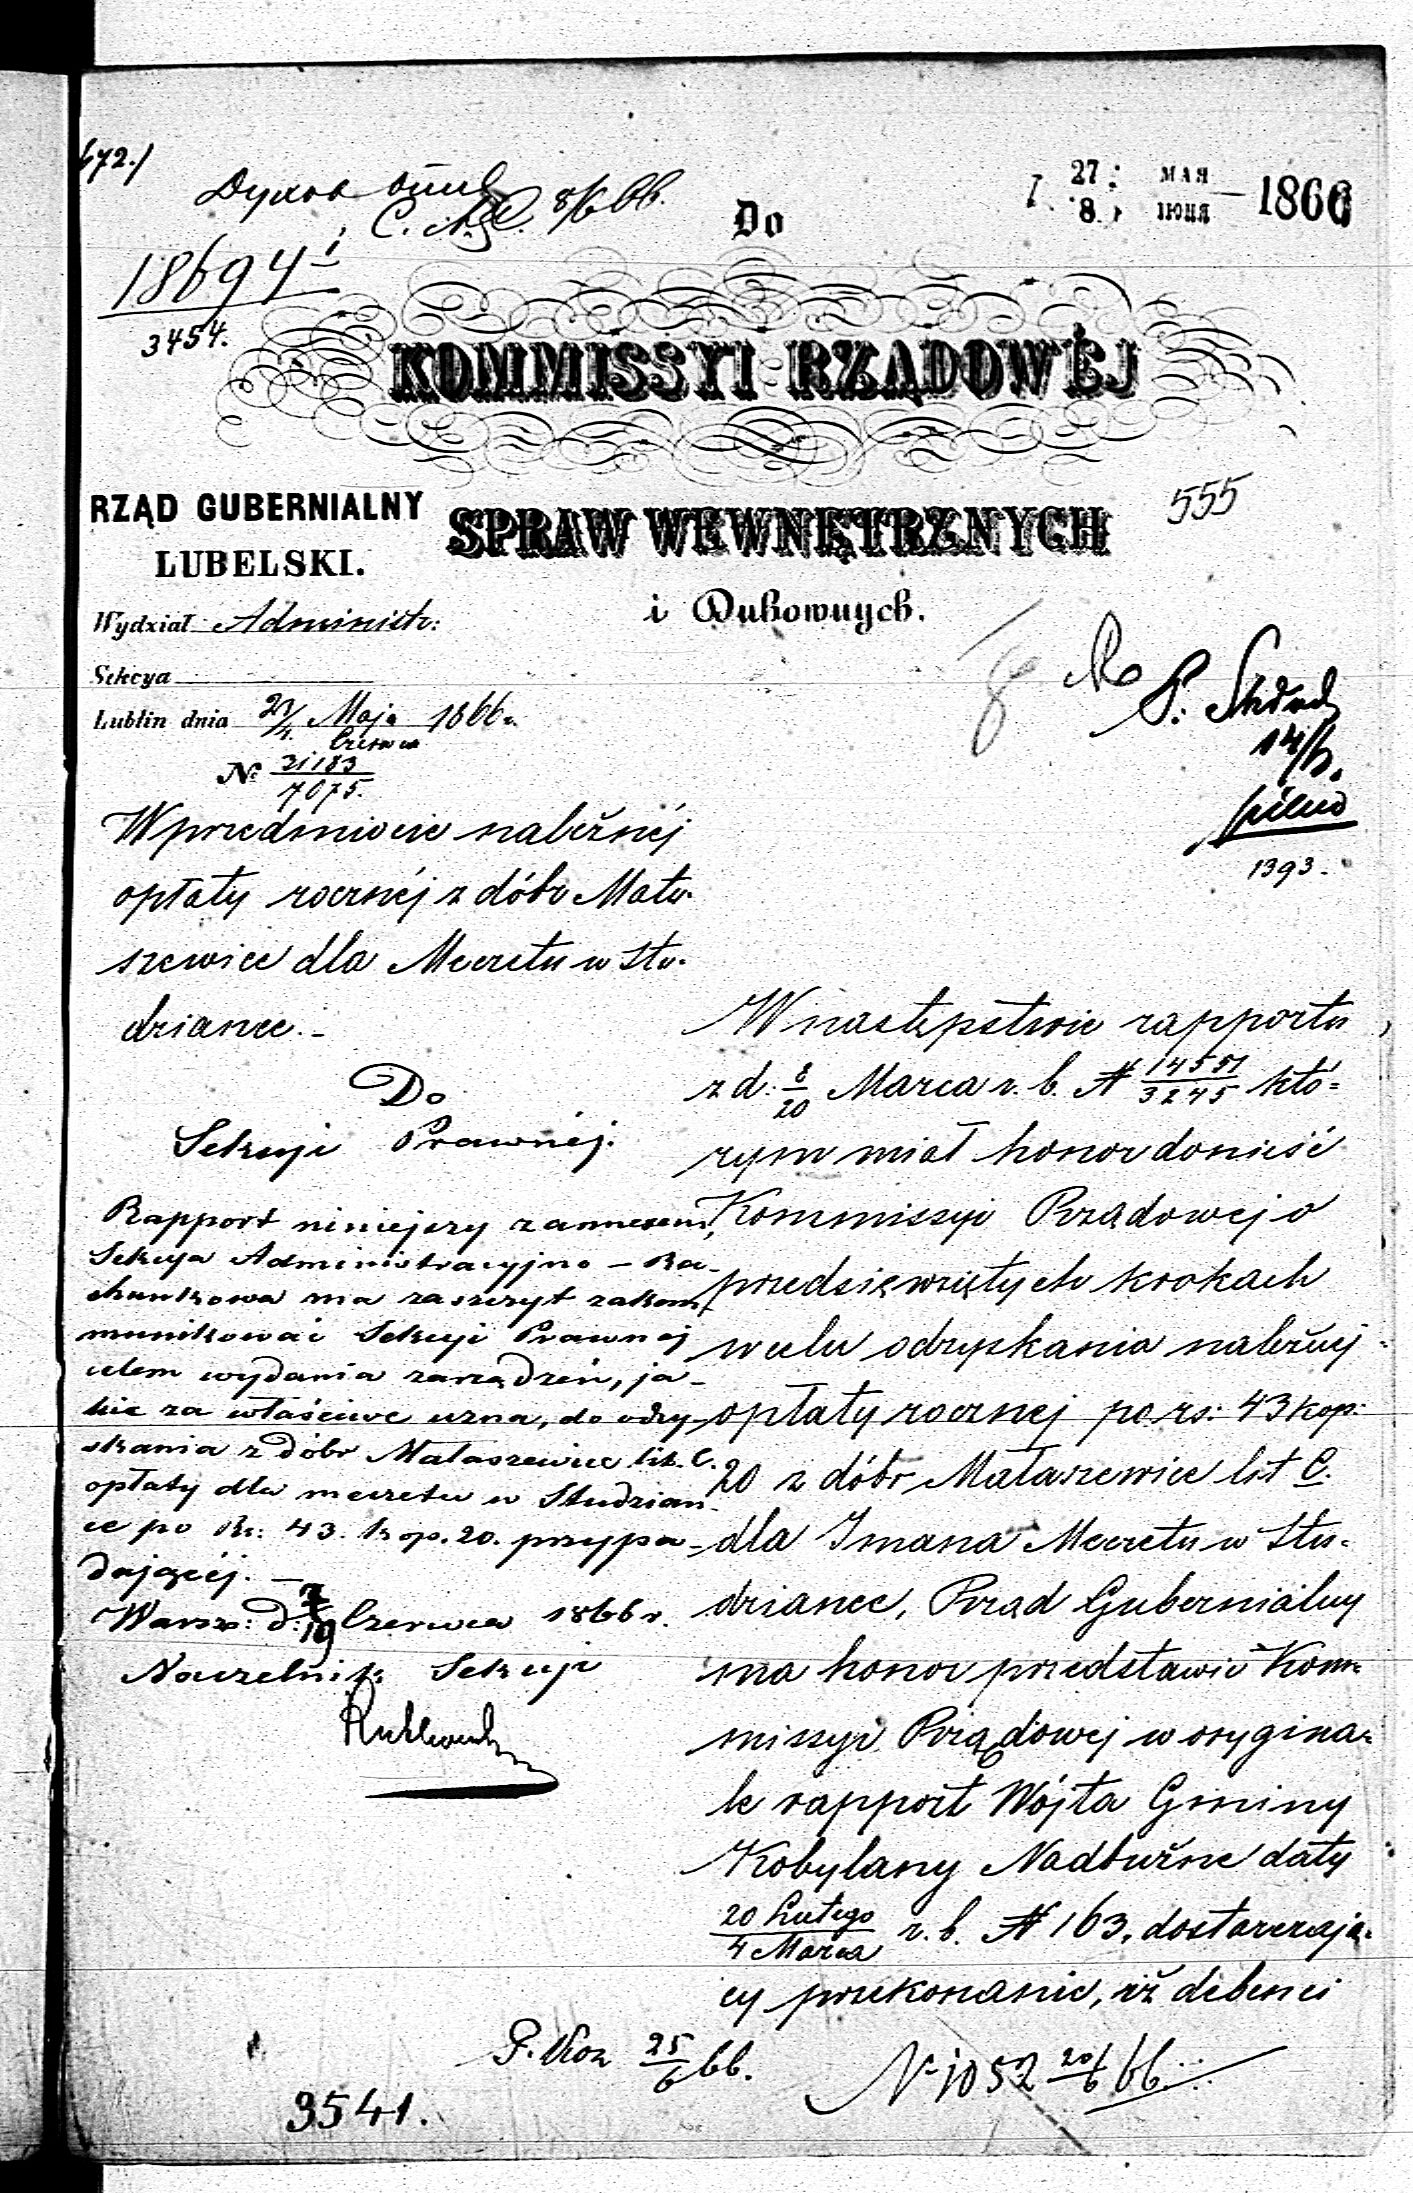 472./
С. 8/6 66.
27 МАЯ
8. ІЮНЯ 1866
18694
3454.
Do
KOMMISSYI RZĄDOWÉJ
SPRAW WEWNĘTRZNYCH
i Duhownych.
555
RZĄD GUBERNIALNY
LUBELSKI.
Wydział Administr:
Sekcya
Lublin dnia Maja 1866.
Czerwca
№ 31183
7075.
P.
pilno
1393.
W przedmiocie należnéj
opłaty rocznéj z dóbr Mała-
szewice dla Meczetu w Stu-
dziance.-
Do
Sekcyi Prawnéj.
Rapport niniejszy z annexem,
Sekcya Administracyjno-Ra-
chunkowa ma zaszczyt zakom-
munikować Sekcyi Prawnej
celem wydania zarządzeń, ja-
kie za właściwe uzna, do odzy-
skania z dóbr Małaszewice lit. C.
opłaty dla meczetu w Studzian-
ce po Rs: 43. kop. 20. przypa-
dającéj. -
Warsz: d. 7/19 Czerwca 1866 r.
Naczelnik Sekcyi
W następstwie rapportu
z d: 8/20 Marca r. b. № 14551/3245 któ-
rym miał honor donieść
Kommissyi Rządowej o
przedsięwziętych krokach
w celu odzyskania należnej
opłaty rocznej po rs: 43 kop:
20 z dóbr Małaszewice lit C.
dla Imana Meczetu w Stu-
dziance, Rząd Gubernialny
ma honor przedstawić Kom-
missyi Rządowej w orygina-
le rapport Wójta Gminy
Kobylany Nadbużne daty
20 Lutego/4 Marca r. b. № 163, dostarczają-
cy przekonanie, iż debenci
P. Koz 25/6 66.
N 1052 20/6 66
3541.